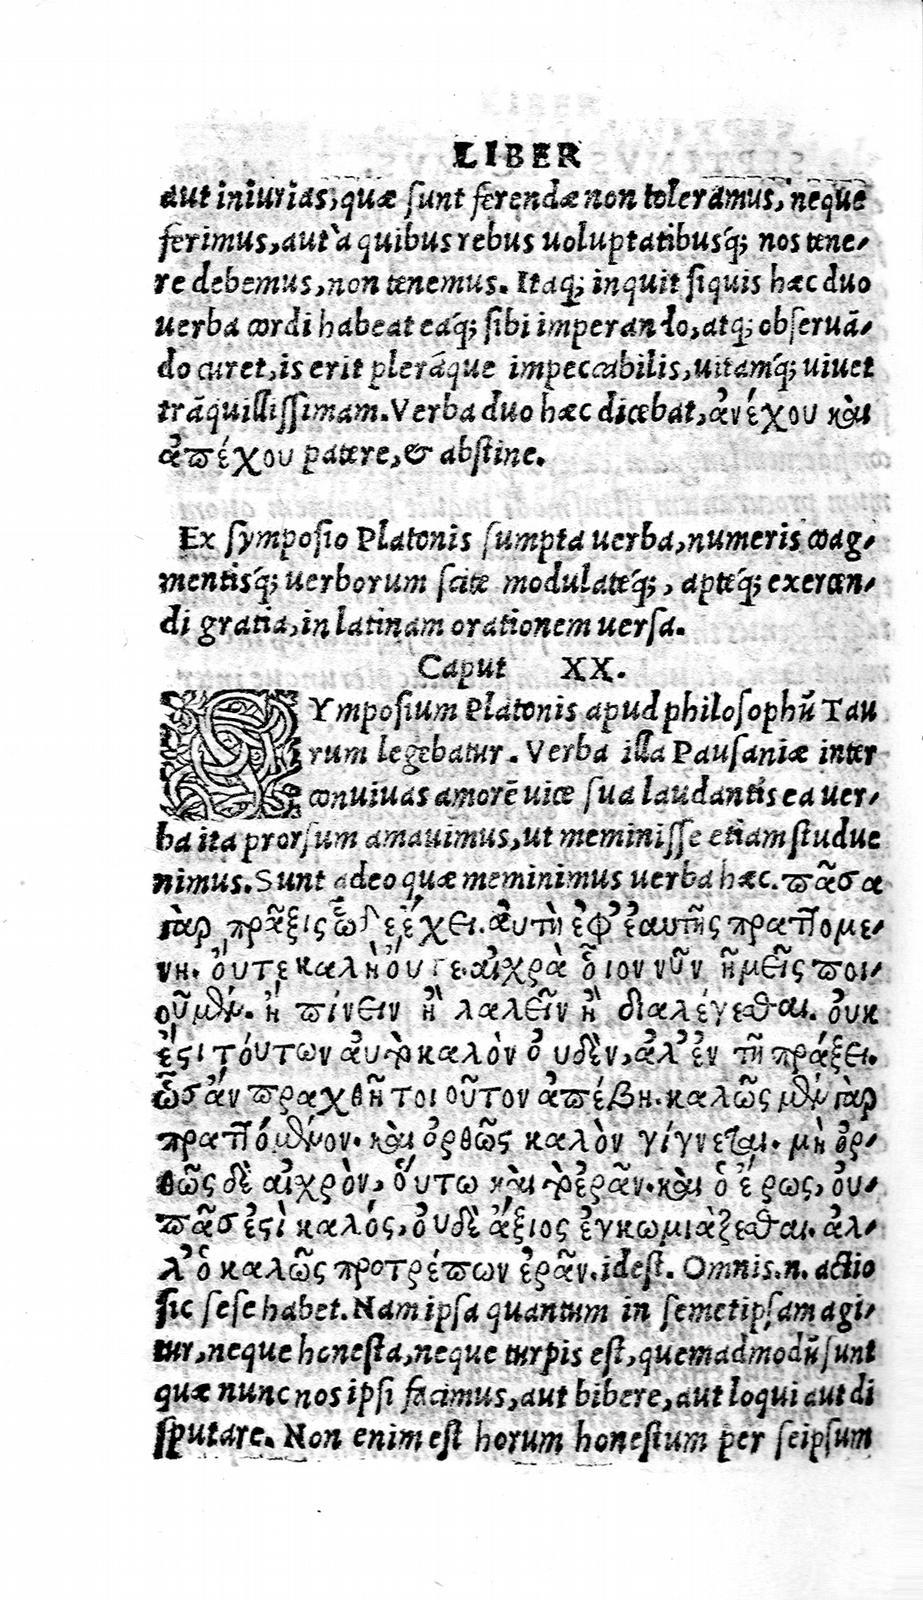 LIBER
aut iniurias, quæ sunt ferendæ non toleramus, neque
ferimus, aut à quibus rebus uoluptatibusq́; nos tene-
re debemus, non tenemus. Itaq; inquit siquis hæc duo
uerba cordi habeat eaq́; sibi imperando, atq; obseruã-
do curet, is erit pleráque impeccabilis, uitamq́; uiuet
trãquillissimam. Verba duo hæc dicebat, ἀνέχου καὶ
ἀπέχου patere, & abstine.
Ex symposio Platonis sumpta uerba, numeris coag-
mentisq́; uerborum scite modulateq́;, apteq́; exercen-
di gratia, in latinam orationem uersa.
Caput XX.
SYmposium Platonis apud philosophũ Tau
rum legebatur. Verba illa Pausaniæ inter
conuiuas amorẽ uice sua laudantis ea uer-
ba ita prorsum amauimus, ut meminisse etiam studue
nimus. Sunt adeo quæ meminimus uerba hæc. πᾶσα
γὰρ πρᾶξις ὧδε ἔχει. ἀυτὴ ἐφ᾽ ἑαυτῆς πραττομέ-
νη. ὄυτε καλὴ ὄυτε αἰχρὰ ὃιον νῦν ἡμεῖς ποι-
οῦμεν. ἢ πίνειν ἢ λαλεῖν ἢ διαλέγεσθαι. ὀυκ
ἔστι τόυτων αυτὸ καλὸν ὀυδὲν, ἀλ᾽ ἐν τῇ πράξει.
ὣσ ἂν πραχθῇ τοιοῦτον ἀπέβη. καλῶς μὲν γὰρ
πραττόμενον. καὶ ὀρθῶς καλὸν γίγνεται. μὴ ὀρ-
θῶς δὲ αἰχρὸν, ὅυτω καὶ τὸ ἐρᾶν. καὶ ὁ ἔρως, ὀυ-
πᾶσ ἐστὶ καλός, ὀυδὲ ἄξιος ἐγκωμιάζεσθαι. ἀλ-
λ᾽ ὁ καλῶς προτρέπων ἐρᾶν. idest. Omnis .n. actio
sic sese habet. Nam ipsa quantum in semetipsam agi-
tur, neque honesta, neque turpis est, quemadmodũ sunt
quæ nunc nos ipsi facimus, aut bibere, aut loqui aut di
sputare. Non enim est horum honestum per seipsum